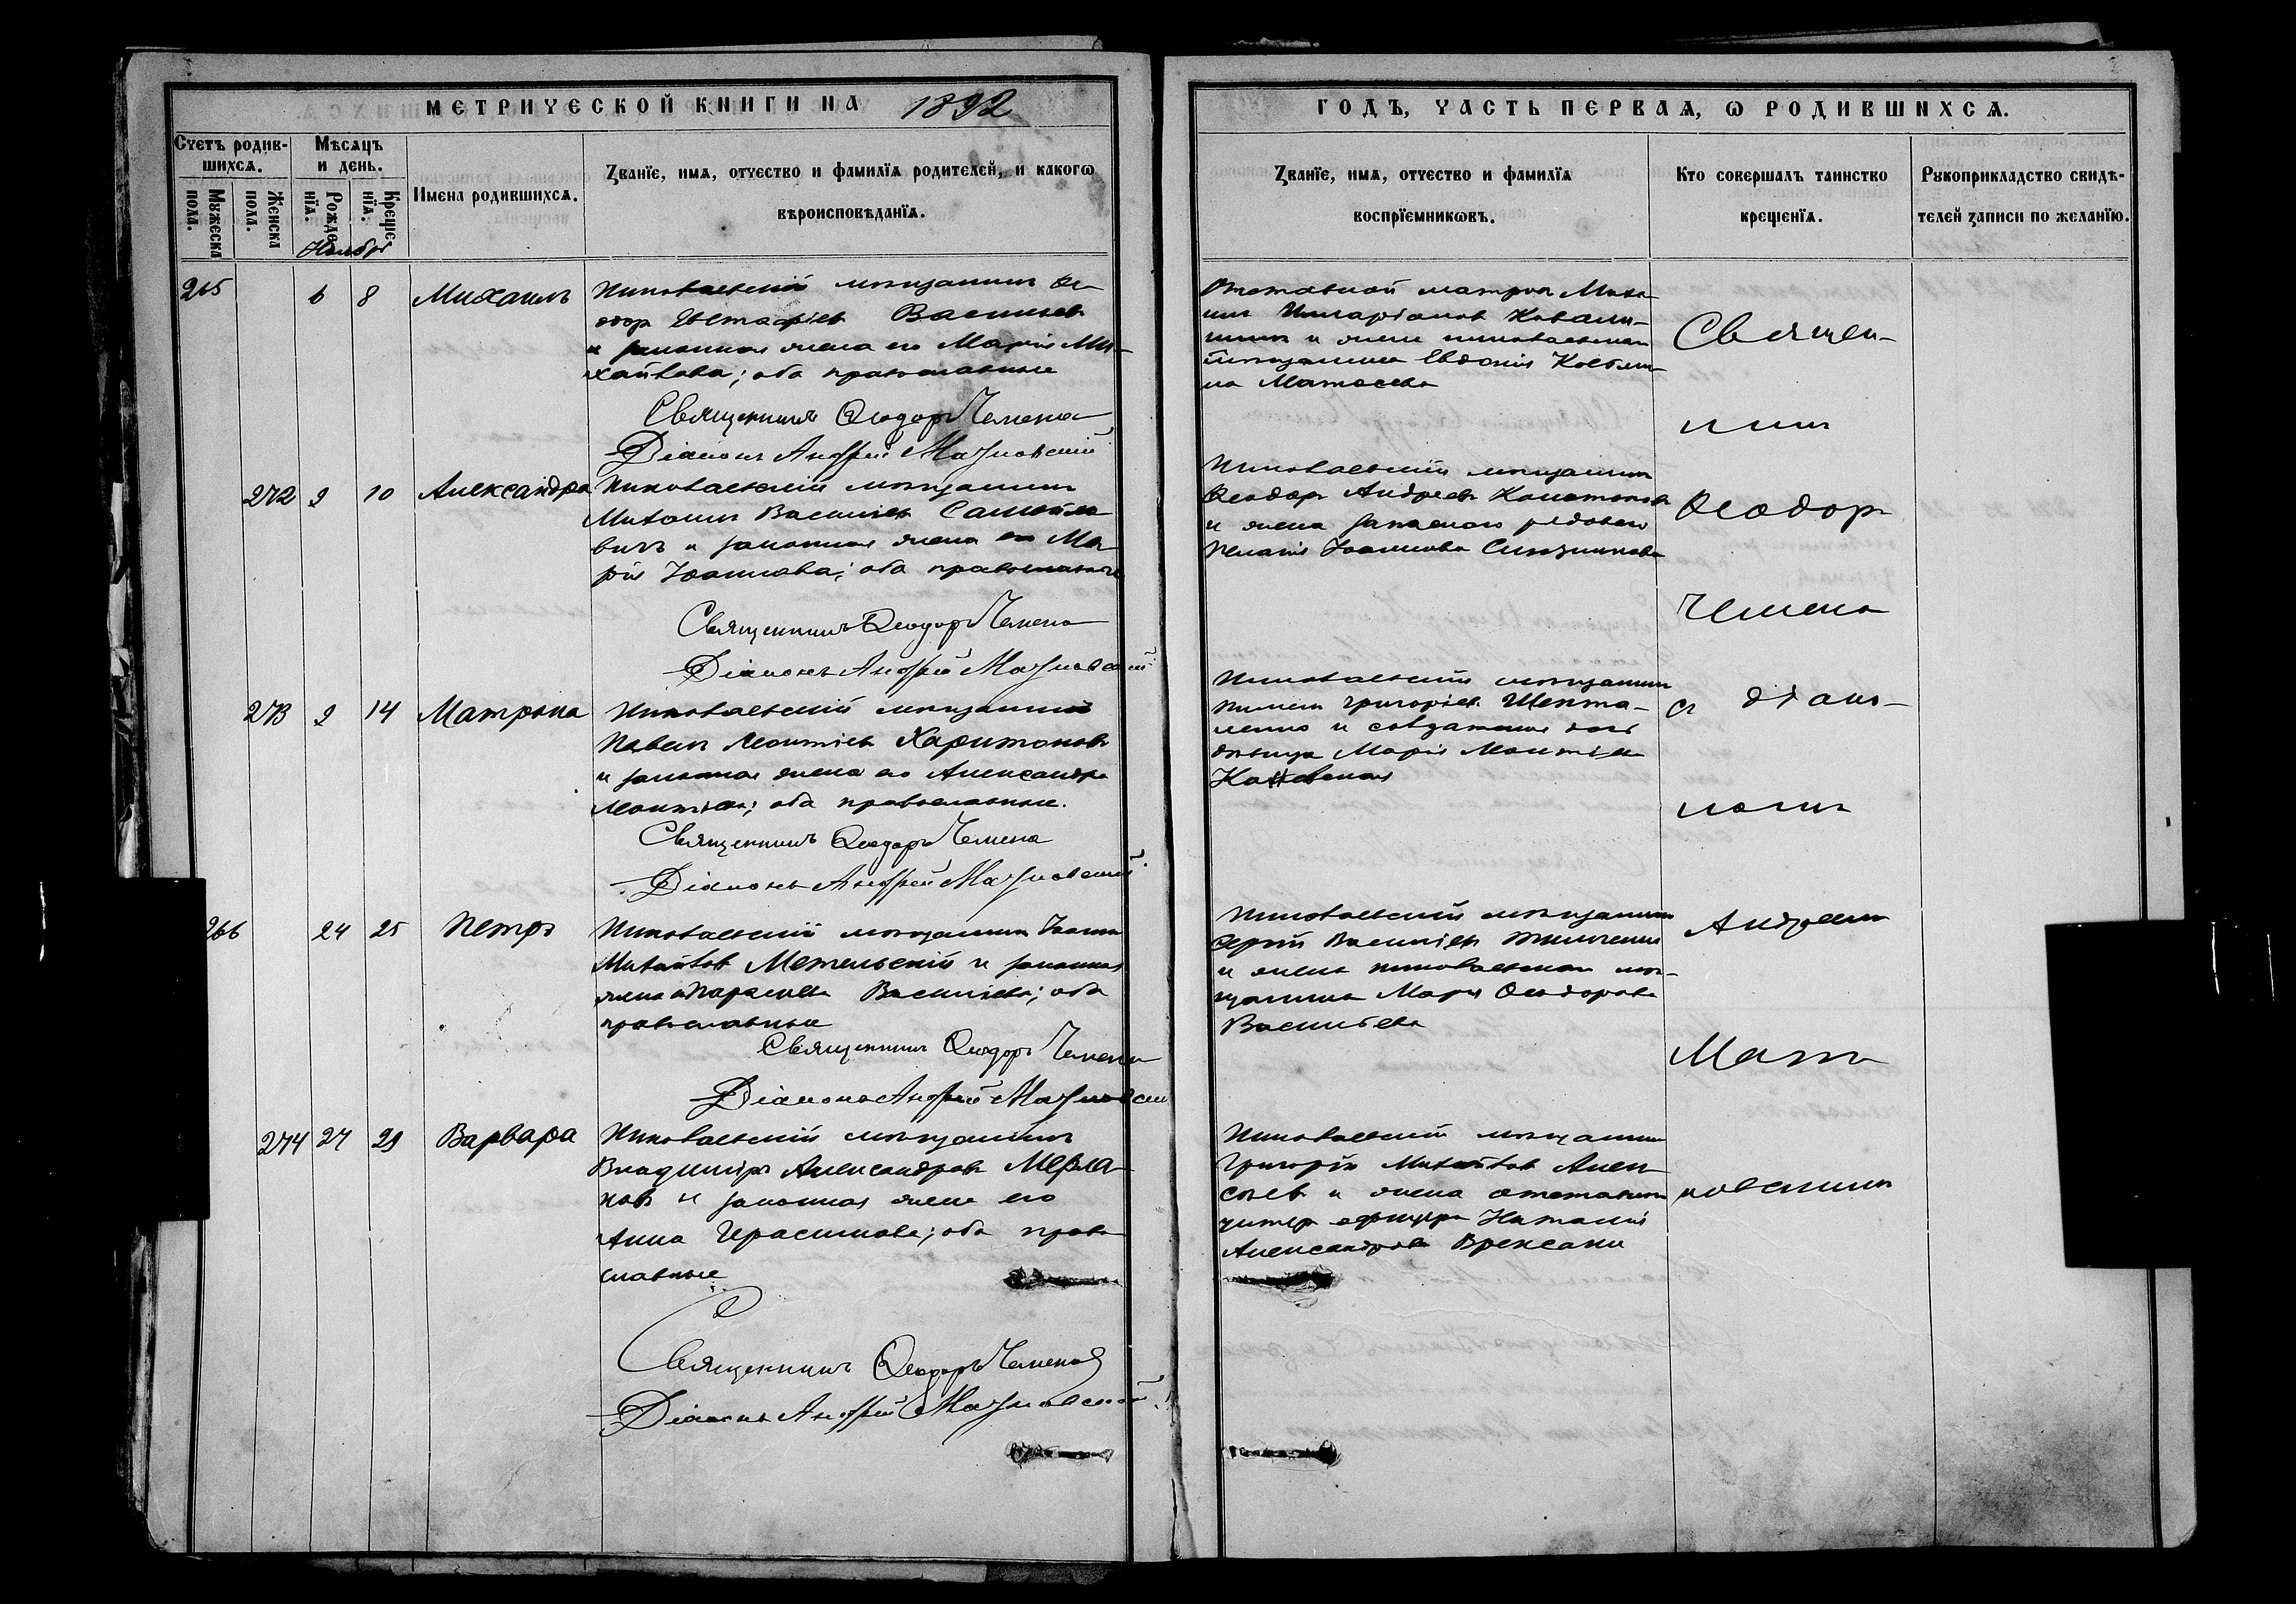 МЕТРИЧЕСКОЙ КНИГИ НА 1892
ГОДЪ, ЧАСТЬ ПЕРВАЯ, Ѡ РОДИВШИХСЯ.
Счетъ родив-
шихся.
Мужеска
пола.
Женска
пола.
Мѣсяцъ
и день.
Рожде
нїя.
Креще-
нїя.
Имена родившихся.
Званїе, имя, отчество и фамилїя родителей, и какогѡ
вѣроисповѣданїя.
Званїе, имя, отчество и фамилїя
воспрїемникѡвъ.
Кто совершалъ таинство
крещенїя.
Рукоприкладство свидѣ-
телей записи по желанїю.
Ноябрь
265 6 8 Михаилъ
Николаевскій мѣщанинъ Ѳе-
одоръ Евстафіевъ Васильевъ
и законная жена его Марія Ми-
хайлова; оба православные
Священникъ Ѳеодоръ Чемена
Діаконъ Андрей Мазновскій
Отставной матросъ Миха
илъ
и жена николаевскаго
мѣщанина Евдокія
на Матвеева
272 9 10 Александра
Николаевскій мѣщанинъ
Михаилъ Васильевъ Самойло
вичъ и законная жена его Ма-
рія Іоаннова; оба православные
Священникъ Ѳеодоръ Чемена
Діаконъ Андрей Мазновскій
Николаевскій мѣщанинъ
Ѳеодоръ Андреевъ
и жена запаснаго рядового
Пелагія Іоаннова
273 9 14 Матрона
Николаевскій мѣщанинъ
Павелъ Леонтіевъ Харитоновъ
и законная жена его Александра
Леонтіева; оба православные.
Священникъ Ѳеодоръ Чемена
Діаконъ Андрей Мазновскій.
Николаевскій мѣщанинъ
Григоріевъ Шепта-
ленко и солдатская дочь
дѣвица Марія Леонтіева
266 24 25 Петръ
Николаевскій мѣщанинъ Іоаннъ
Михайловъ Метельскій и законная
жена его Параскева Васильева; оба
православные
Священникъ Ѳеодоръ Чемена
Діаконъ Андрей Мазновскій
Николаевскій мѣщанинъ
Сергій Василіевъ
и жена николаевскаго мѣ-
щанина Марія Ѳеодорова
Васильева
274 27 29 Варвара
Николаевскій мѣщанинъ
Владиміръ Александровъ Мерла-
новъ и законная жена его
Анна Герасимова; оба право
славные
Священникъ Ѳеодоръ Чемена
Діаконъ Андрей Мазновскій.
Николаевскій мѣщанинъ
Григорій Михайловъ Алек-
сѣевъ и жена отставного
унтеръ офицера Наталія
Александрова
Священ-
никъ
Ѳеодоръ
Чемена
съ діако-
номъ
Андреемъ
Маз-
новскимъ